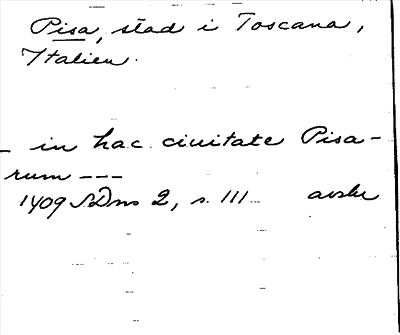 Pisa, stad i Toscana,
Italien.
– in hac ciuitate Pisa-
rum ---
1409 SDns 2, s. 111 avskr